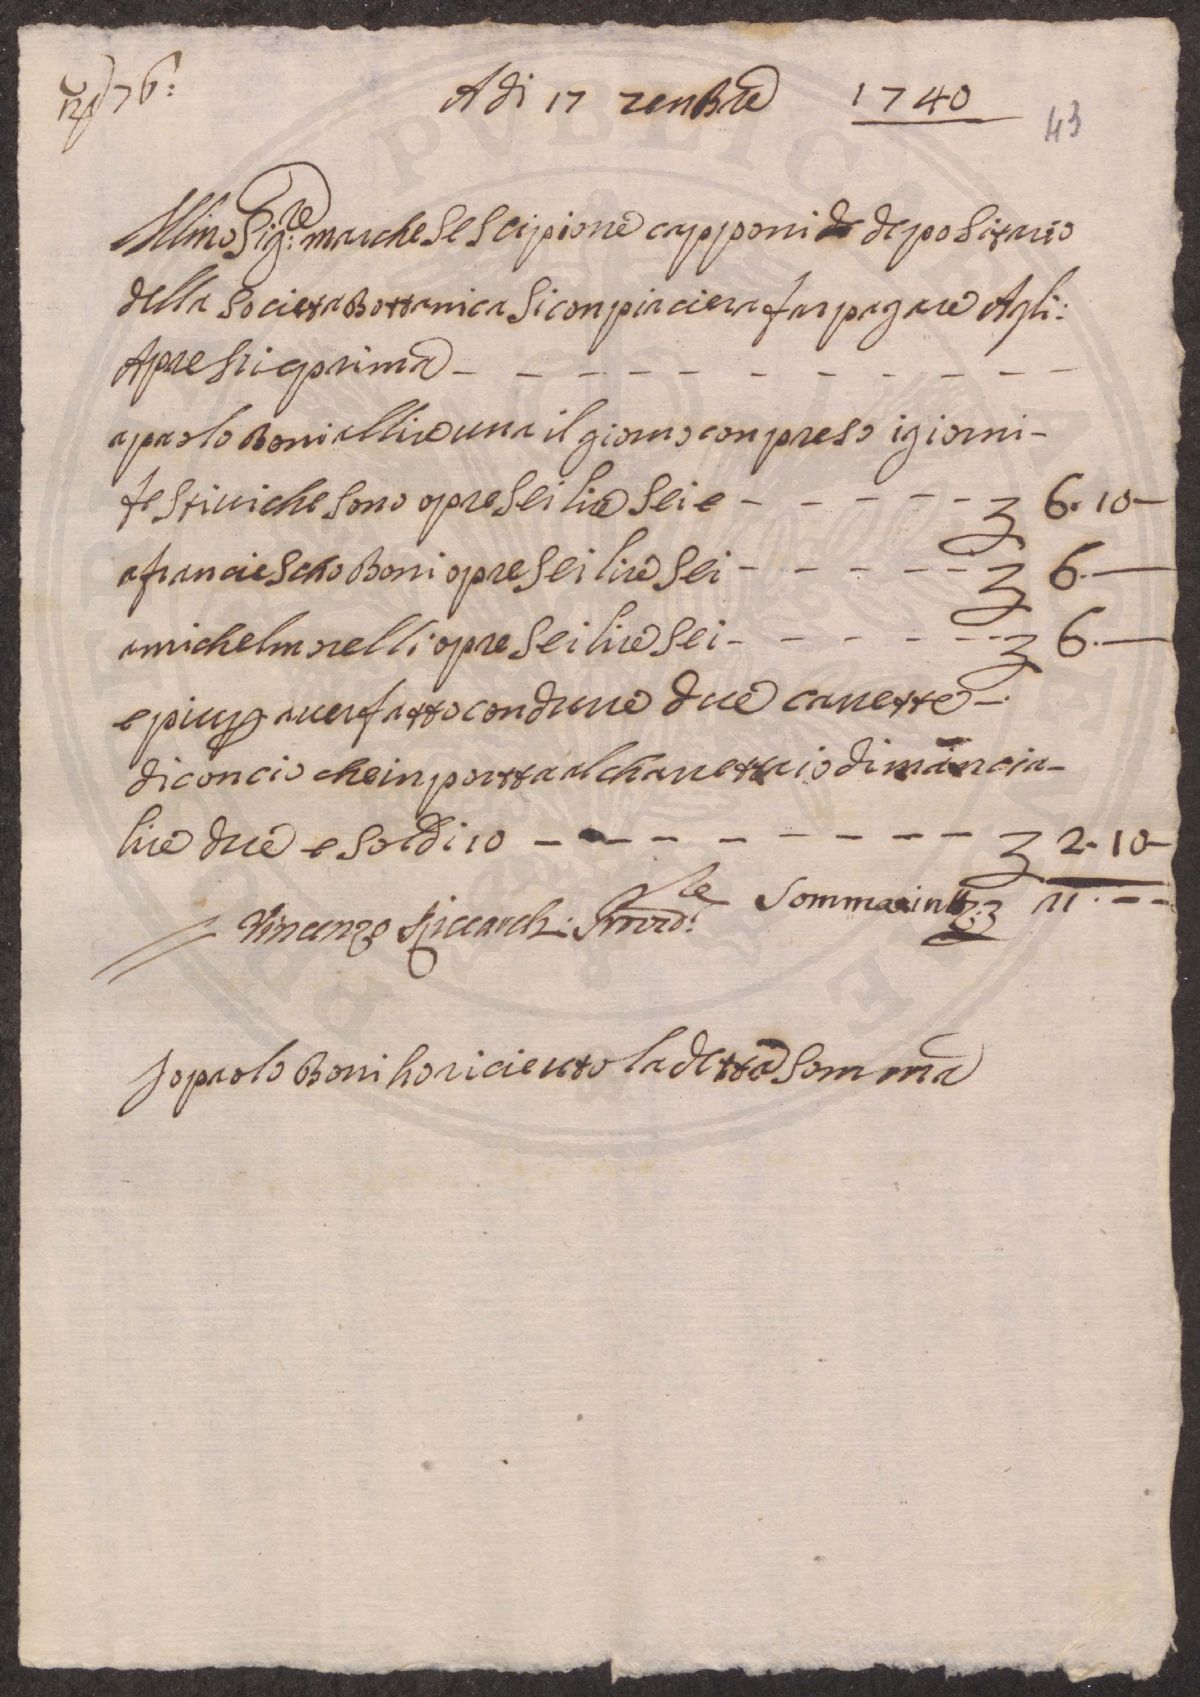 76:
A di 17 xenbre 1740
43
Illmo Sig:re marchese Scipione capponi de depositario
della Societa Bottanica Si conpiaciera far pagare Agli:
Apresti e prima - - - - - - - - - -
a paolo Boni a llire una il giorno conpreso i giorni -
festivi che sono opre sei lire sei e - - - - - 6. 10 -
a franciescho Boni opre sei lire sei - - - - - 6. —
a michel morelli opre sei lire sei - - - - - 6. —
e piu p aver fatto condurre due carrette -
di concio che inportta al charrettaio di mancia -
lire due e soldi 10 - - - - - - - - 2. 10 -
Vincenzo Riccardi Provvd:re Somma in tt: 21. - -
Io paolo Boni ho riceuto la detta Somma
PVBLIC